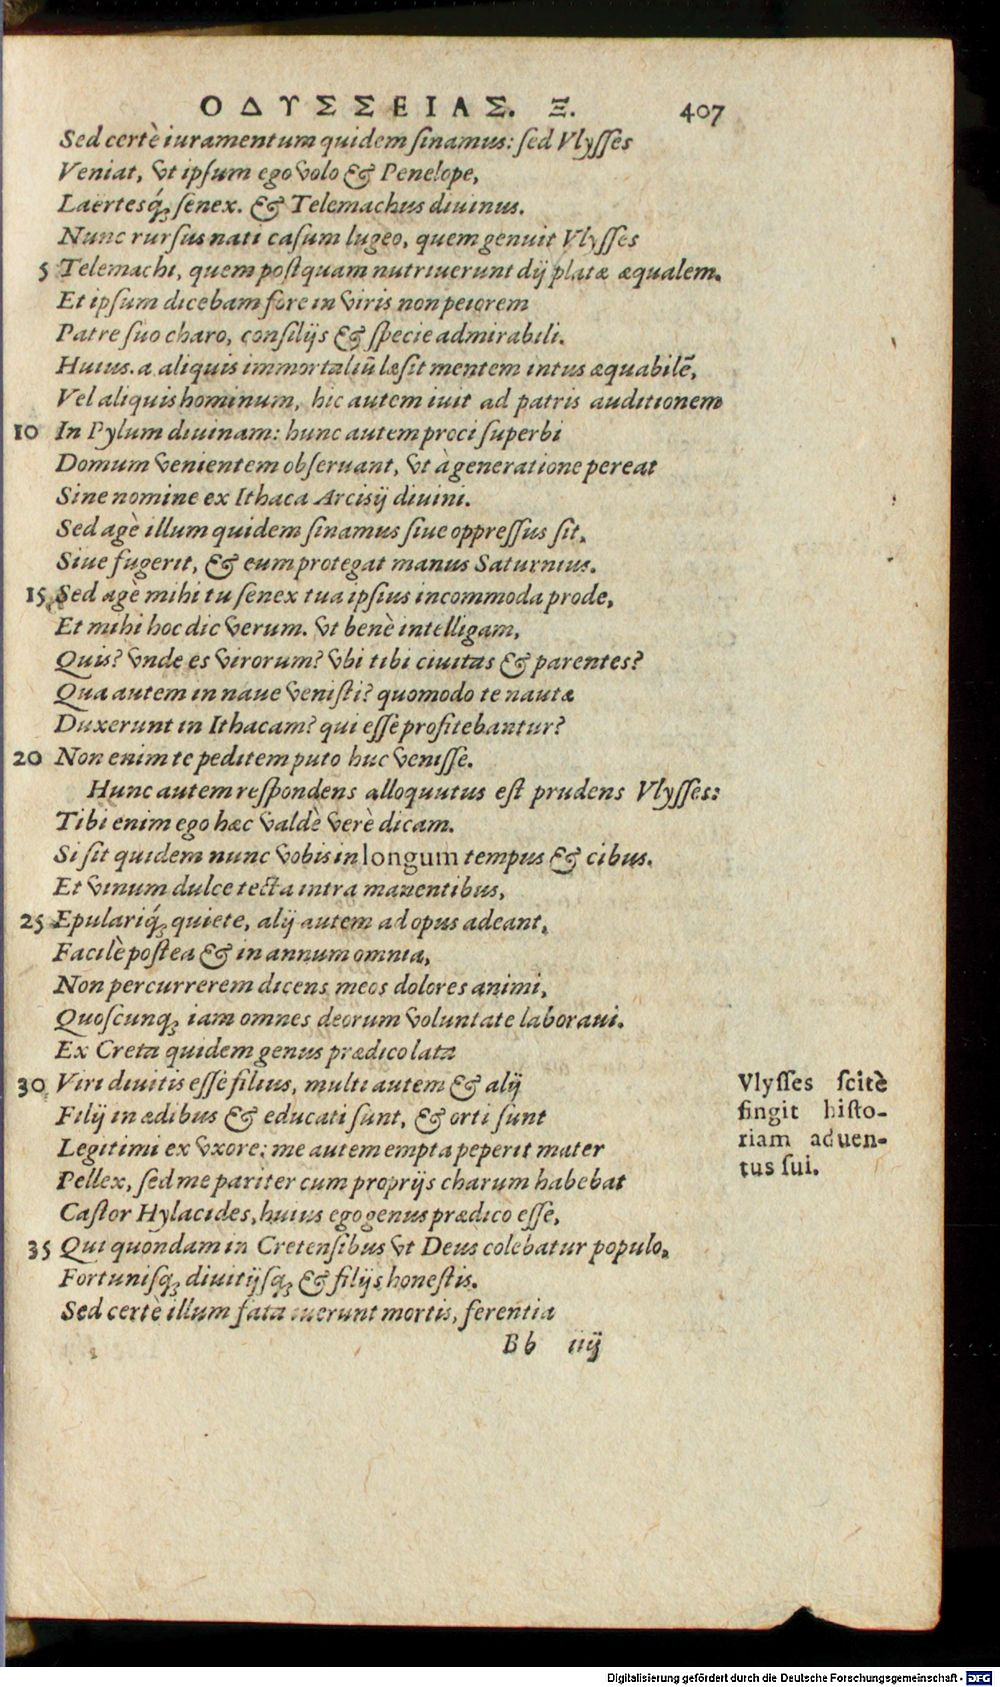 ΟΔΥΣΣΕΙΑΣ. Ξ. 407
Sed certè iuramentum quidem ſinamus: ſed Vlyſſes
Veniat, vt ipſum ego volo & Penelope,
Laërtesq́ꝫ ſenex. & Telemachus diuinus.
Nunc rurſus nati caſum lugeo, quem genuit Vlyſſes
5 Telemachi, quem poſtquam nutriuerunt dij platæ æqualem.
Et ipſum dicebam fore in viris non peiorem
Patre ſuo charo, conſilijs & ſpecie admirabili.
Huius. a aliquis immortaliũ læſit mentem intus æquabilẽ,
Vel aliquis hominum, hic autem iuit ad patris auditionem
10 In Pylum diuinam: hunc autem proci ſuperbi
Domum venientem obſeruant, vt à generatione pereat
Sine nomine ex Ithaca Arcisij diuini.
Sed agè illum quidem ſinamus ſiue oppreſſus ſit,
Siue fugerit, & eum protegat manus Saturnius.
15 Sed agè mihi tu ſenex tua ipſius incommoda prode,
Et mihi hoc dic verum. vt benè intelligam,
Quis? vnde es virorum? vbi tibi ciuitas & parentes?
Qua autem in naue veniſti? quomodo te nautæ
Duxerunt in Ithacam? qui eſſe profitebantur?
20 Non enim te peditem puto huc veniſſe.
Hunc autem reſpondens alloquutus eſt prudens Vlyſſes:
Tibi enim ego hæc valdè verè dicam.
Si ſit quidem nunc vobis in longum tempus & cibus.
Et vinum dulce tecta intra manentibus,
25 Epulariq́ꝫ quiete, alij autem ad opus adeant,
Facilè poſtea & in annum omnia,
Non percurrerem dicens meos dolores animi,
Quoſcunqꝫ iam omnes deorum voluntate laboraui.
Ex Creta quidem genus prædico lata
30 Viri diuitis eſſe filius, multi autem & alij
Filij in ædibus & educati ſunt, & orti ſunt
Legitimi ex vxore: me autem empta peperit mater
Pellex, ſed me pariter cum proprijs charum habebat
Caſtor Hylacides, huius ego genus prædico eſſe,
35 Qui quondam in Cretenſibus vt Deus colebatur populo,
Fortuniſqꝫ diuitijſqꝫ & filijs honeſtis.
Sed certè illum fata iuerunt mortis, ferentia
Bb iiij
Vlyſſes ſcitè
fingit hiſto-
riam aduen-
tus ſui.
Digitalisierung gefördert durch die Deutsche Forschungsgemeinschaft - DFG